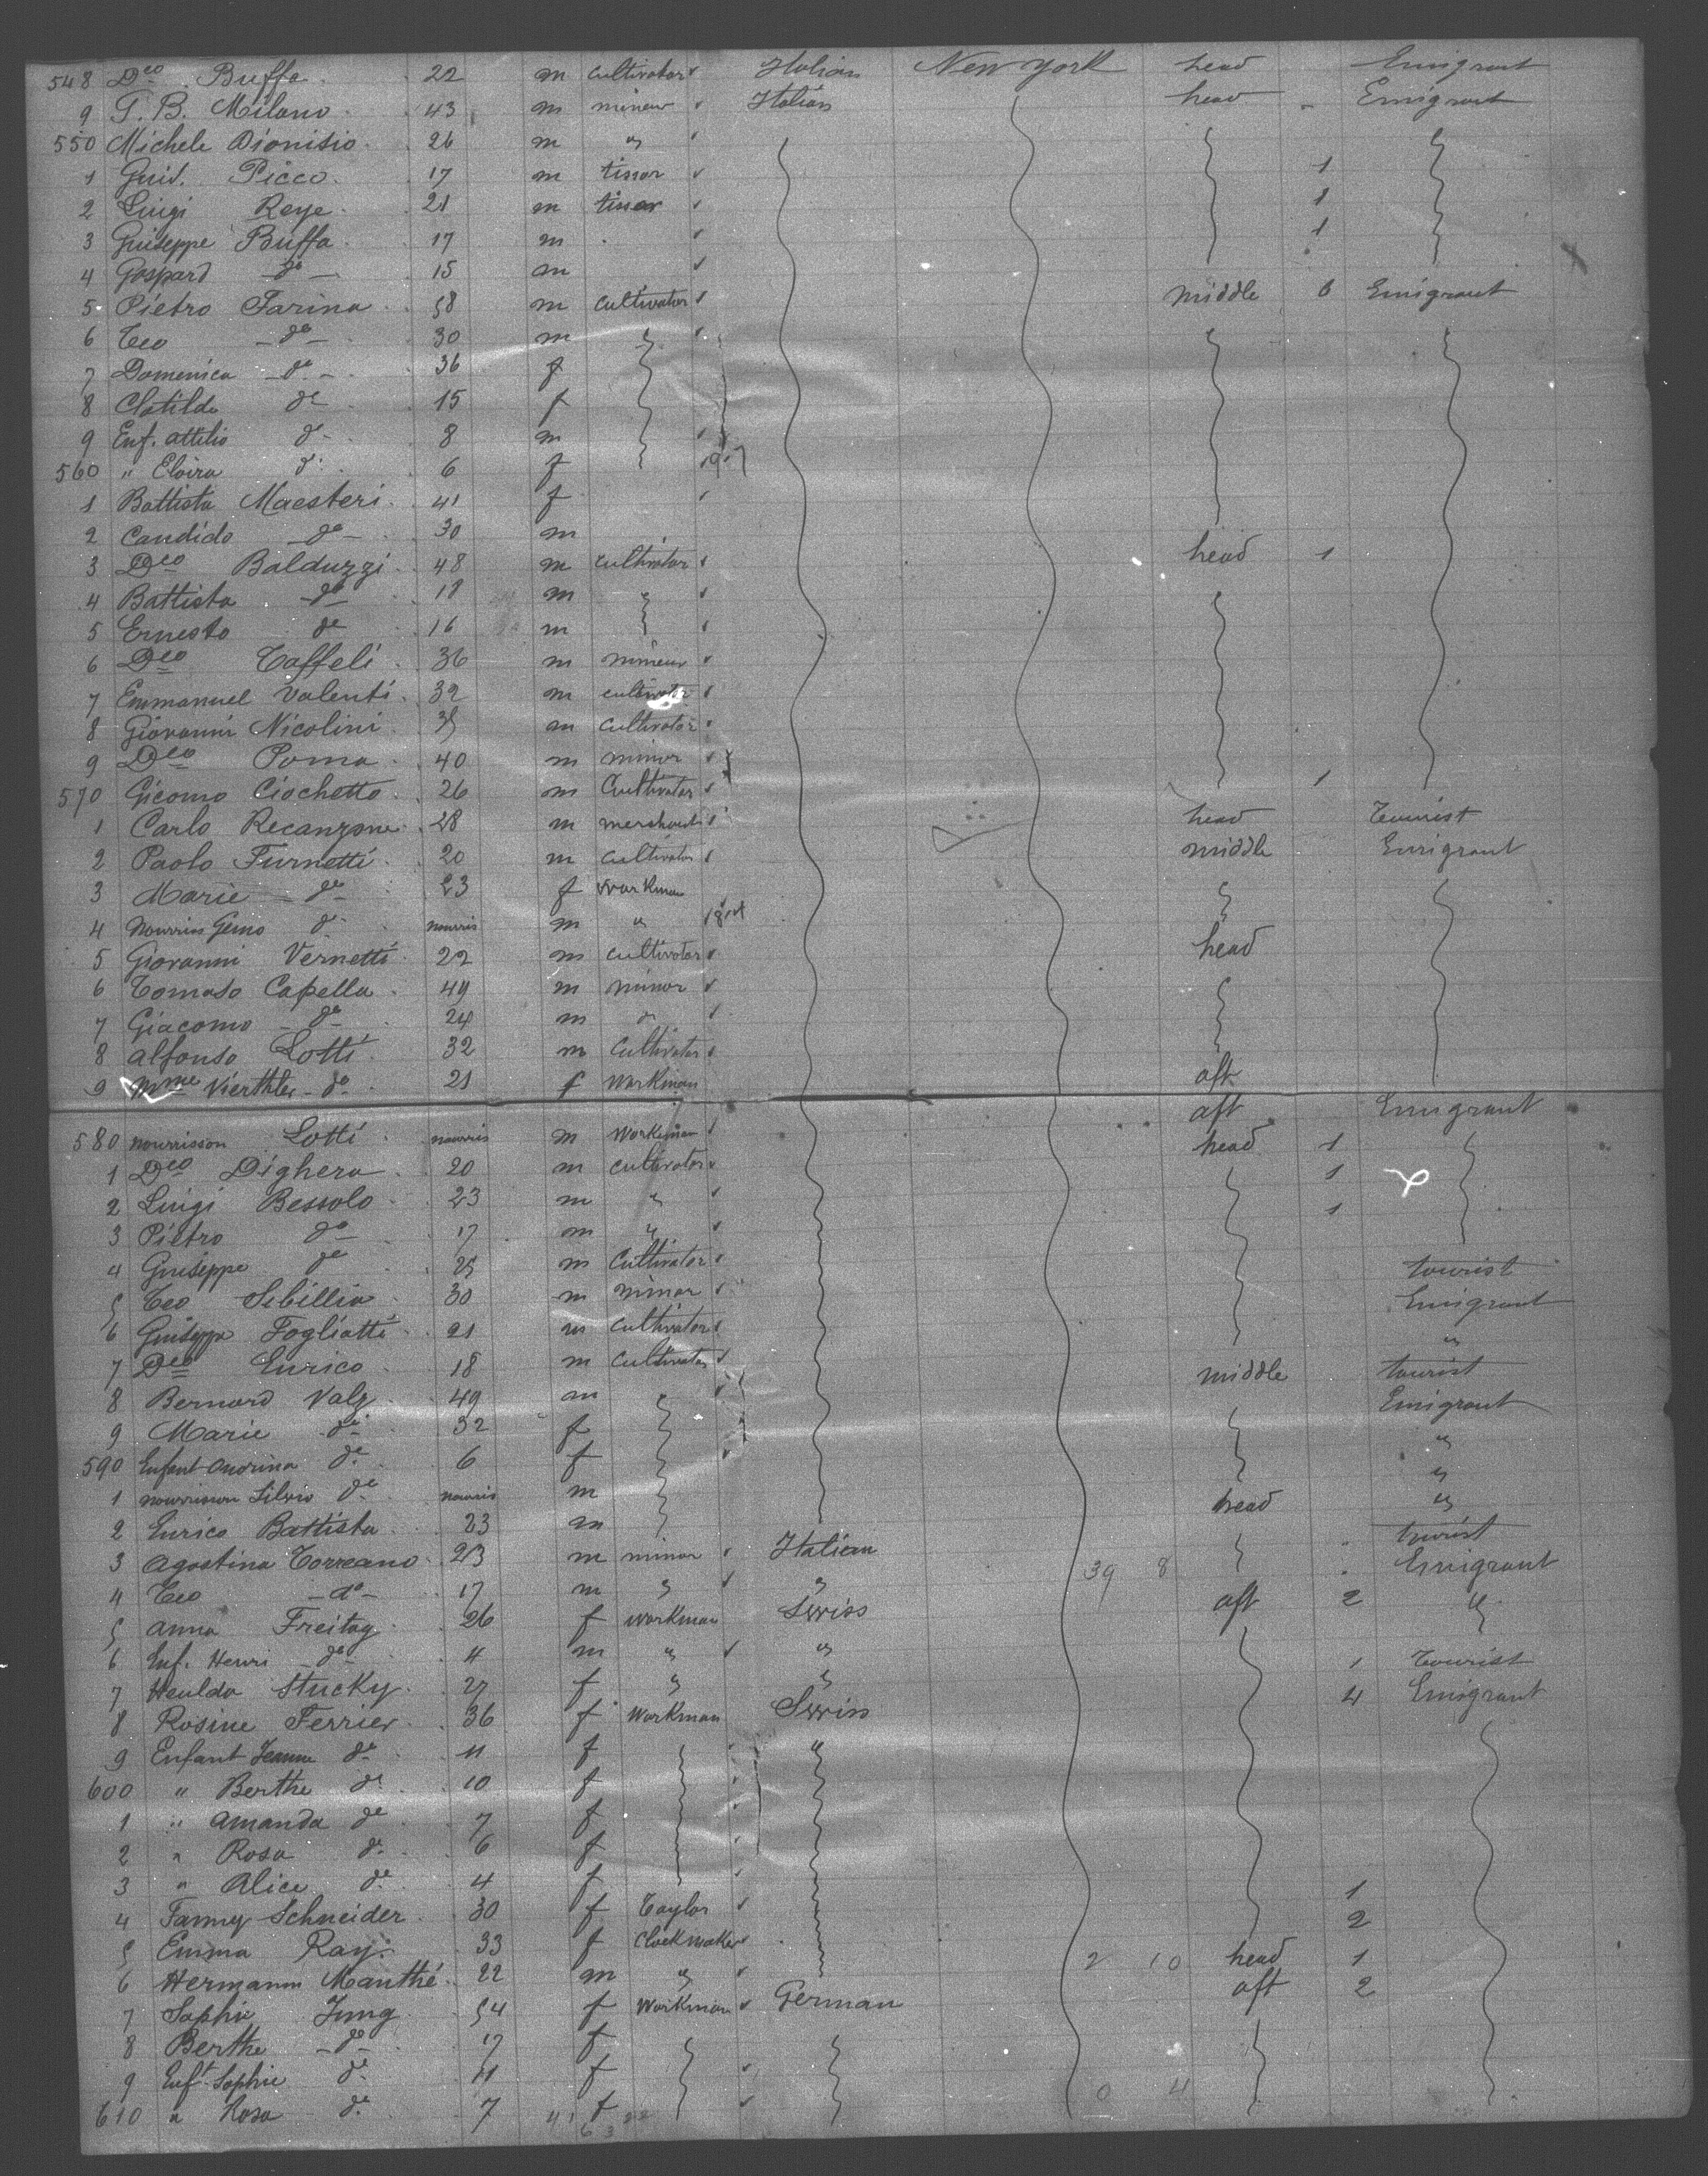 548 Dco Buffa 22 m cultivator Italian New York head Emigrant
9 G. B. Milano 43 m mineur Italian head " Emigrant
550 Michele Dionisio 26 m "
1 Guid. Picco 17 m tissor 1
2 Luigi Reye 21 m tissor 1
3 Guiseppe Buffa 17 m 1
4 Gaspard do 15 m
5 Pietro Farina 58 m cultivator middle 6 Emigrant
6 Teo do 30 m
7 Domenica do 36 f
8 Clotilde do 15 f
9 Enf. Attilio do 8 m
560 " Elvira do 6 f
1 Battista Maesteri 41 f
2 Candido do 30 m
3 Dco Balduzzi 48 m cultivator head 1
4 Battista do 18 m "
5 Ernesto do 16 m
6 Dco Taffeli 36 m mineur
7 Emmanuel Valenti 32 m cultivator
8 Giovanni Nicolini m cultivator
9 Dco Poma 40 m minor
570 Gicomo Ciochetto 26 m Cultivator 1
1 Carlo Recanzone 28 m merchant head Tourist
2 Paolo Furnetti 20 m cultivator middle Emigrant
3 Marie do 23 f workman
4 Nourris Geno do nourris m "
5 Giovanni Vernetti 22 m cultivator head
6 Tomaso Capella 49 m minor
7 Giacomo do 24 m "
8 Alfonso Lotti 32 m Cultivator
9 Mme Vierthler do 21 f workman aft
580 nourrisson Lotti nourris m workman aft Emigrant
1 Dco Dighera 20 m cultivator head 1
2 Luigi Bessolo 23 m " 1
3 Pietro do 17 m " 1
4 Guiseppe do 25 m Cultivator tourist
5 Teo Sibillia 30 m minor Emigrant
6 Guiseppe Fogliatti 21 m cultivator "
7 Dco Enrico 18 m cultivator middle tourist
8 Bernard Valz 49 m " Emigrant
9 Marie do 32 f "
590 Enfant Onorina do 6 f "
1 nourrisson Silvio do nourris m head "
2 Enrico Battista 23 m tourist
3 Agostina Torreano 23 m minor Italian 39 8 Emigrant
4 Teo do 17 m " " aft 2 "
5 Anna Freitag 26 f workman Swiss
6 Enf. Henri do 4 m " " 1 Tourist
7 Heulda Stucky 27 f " " 4 Emigrant
8 Rosine Ferrier 36 f workman Swiss
9 Enfant Jeanne do 11 f "
600 " Berthe do 10 f
1 " Amanda do 7 f
2 " Rosa do 6 f
3 " Alice do 4 f 1
4 Fanny Schneider 30 f Taylor 2
5 Emma Ray 33 f Clockmaker 2 10 head 1
6 Hermann Manthé 22 m " aft 2
7 Sophie Jung 54 f Workman German
8 Berthe do 17 f
9 Enft Sophie do 11 f 0 4
610 " Rosa do 7 f